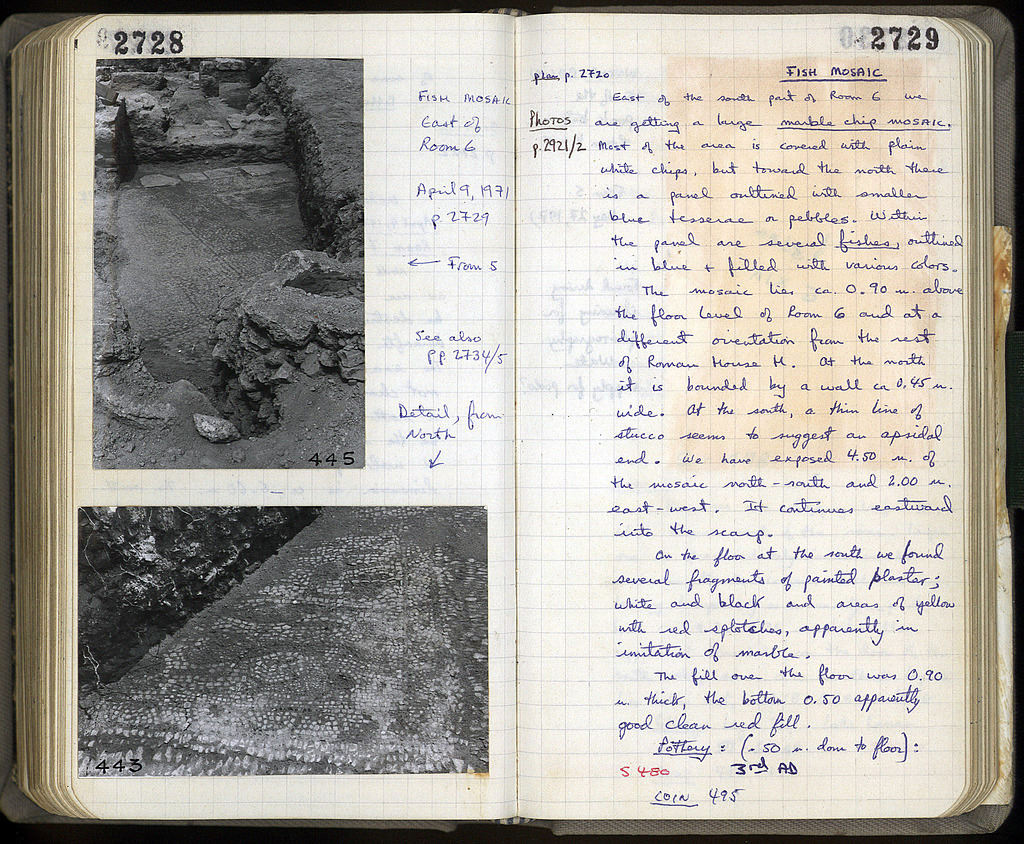 2728
FISH MOSAIC
East of
Room 6
April 9, 1971
p. 2729
← From S
See also
pp 2734/5
Detail, from
North
↓
445
443
2729
plan, p. 2720
FISH MOSAIC
East of the south part of Room 6 we
PHOTOS
p. 2921/2
are getting a large marble chip mosaic.
Most of the area is covered with plain
white chips, but toward the north there
is a panel outlined with smaller
blue tesserae or pebbles. Within
the panel are several fishes, outlined
in blue + filled with various colors.
The mosaic lies ca. 0.90 m. above
the floor level of Room 6 and at a
different orientation from the rest
of Roman House H. At the north
it is bounded by a wall ca 0.45 m.
wide. At the south, a thin line of
stucco seems to suggest an apsidal
end. We have exposed 4.50 m. of
the mosaic north-south and 2.00 m.
east-west. It continues eastward
into the scarp.
On the floor at the south we found
several fragments of painted plaster;
white and black and areas of yellow
with red splotches, apparently in
imitation of marble.
The fill over the floor was 0.90
m. thick, the bottom 0.50 apparently
good clean red fill.
Pottery: (-50 m. down to floor):
S 480 3rd AD
COIN 495